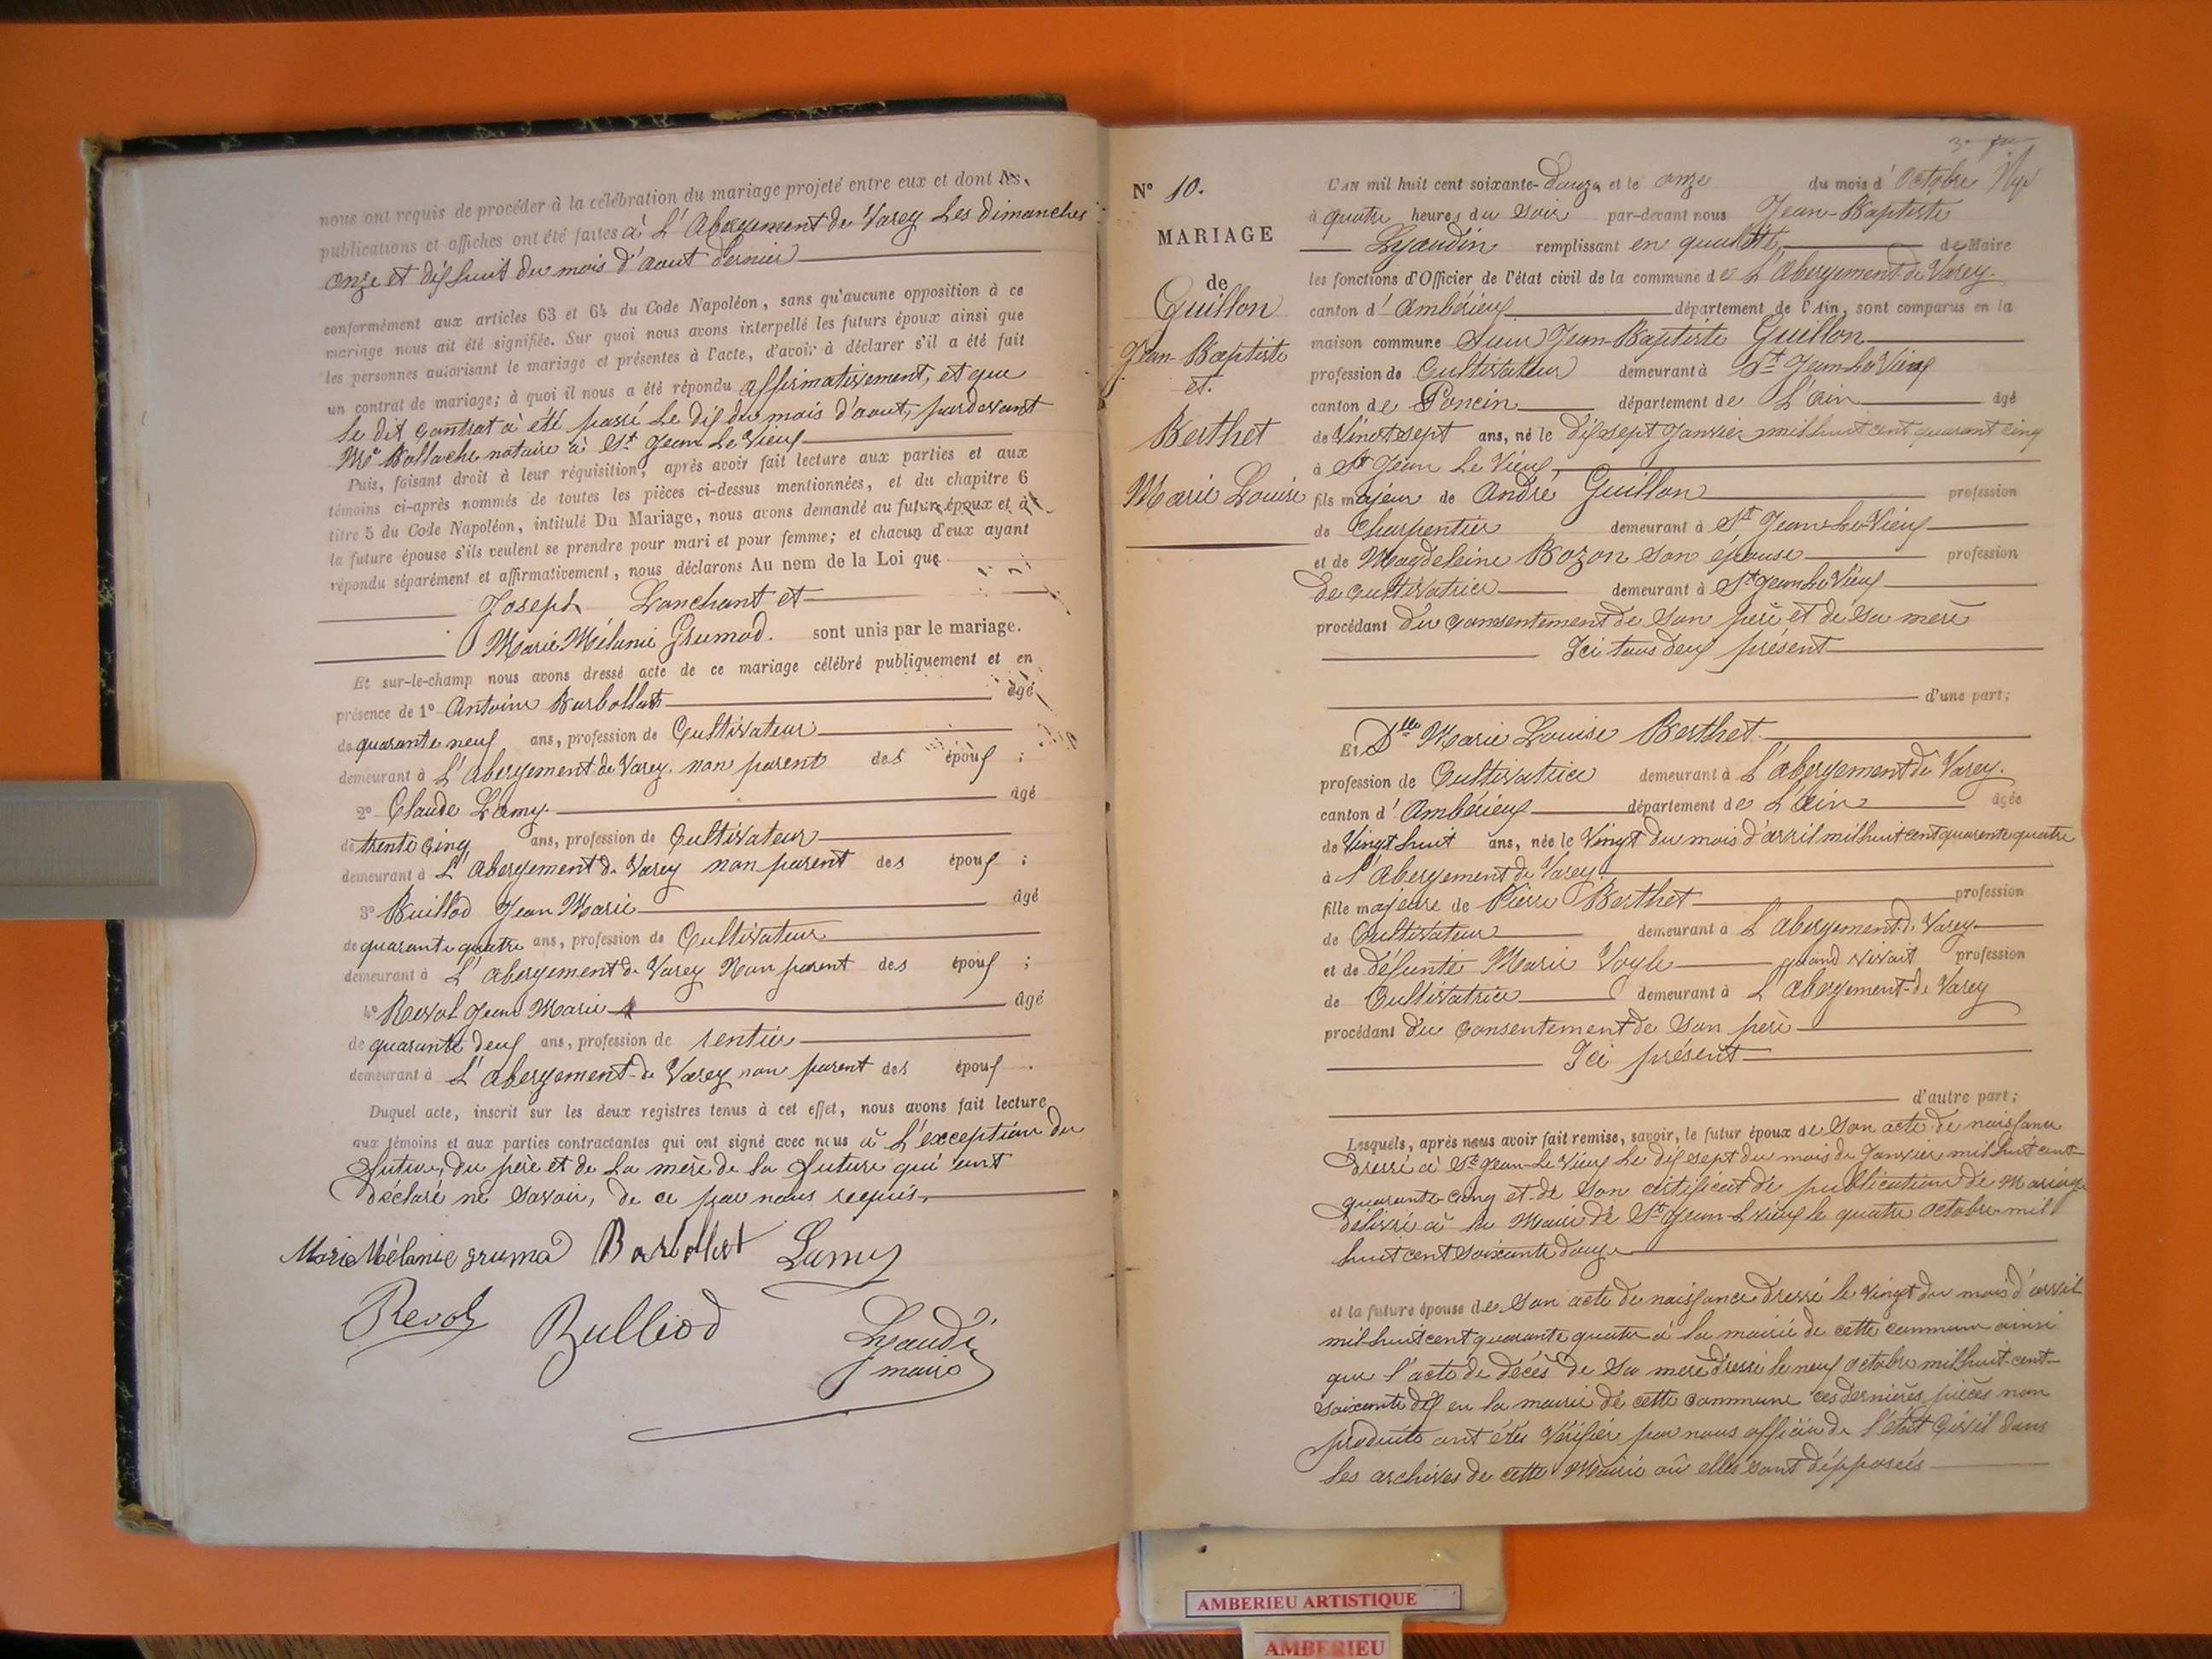 nous ont requis de procéder à la célébration du mariage projeté entre eux et dont les
publications et affiches ont été faites à L'Abergement de Varey Les dimanches
onze et dix huit du mois d'aout dernier
conformément aux articles 63 et 64 du Code Napoléon, sans qu'aucune opposition à ce
mariage nous ait été signifiée. Sur quoi nous avons interpellé les futurs époux ainsi que
les personnes autorisant le mariage et présentes à l'acte, d'avoir à déclarer s'il a été fait
un contrat de mariage; à quoi il nous a été répondu affirmativement, et que
le dit contrat à été passé le dix du mois d'aout, pardevant
Me Bollache notaire à St Jean Le Vieux
Puis, faisant droit à leur réquisition, après avoir fait lecture aux parties et aux
témoins ci-après nommés de toutes les pièces ci-dessus mentionnées, et du chapitre 6
titre 5 du Code Napoléon, intitulé Du Mariage, nous avons demandé au futur époux et à
la future épouse s'ils veulent se prendre pour mari et pour femme; et chacun d'eux ayant
répondu séparément et affirmativement, nous déclarons Au nom de la Loi que
Joseph Lanchant et
Marie Mélanie Grumod. sont unis par le mariage.
Et sur-le-champ nous avons dressé acte de ce mariage célébré publiquement et en
présence de 1° Antoine Barbollat âgé
de quarante neuf ans, profession de Cultivateur
demeurant à L'abergement de Varey. non parent des époux ;
2° Claude Lamy. âgé
de trente cinq ans, profession de Cultivateur
demeurant à L'abergement de Varey non parent des époux ;
3° Buillod Jean Marie âgé
de quarante quatre ans, profession de Cultivateur
demeurant à L'abergement de Varey Non parent des époux ;
4° Reval Jean Marie âgé
de quarante deux ans, profession de rentier
demeurant à L'abergement de Varey non parent des époux .
Duquel acte, inscrit sur les deux registres tenus à cet effet, nous avons fait lecture
aux témoins et aux parties contractantes qui ont signé avec nous à L'exception du
futur, du père et de la mère de la future qui ont
déclaré ne savoir, de ce par nous requis.
Marie Mélanie grumod Barbollat Lamy
Revol Bulliod Lyaudin
maire
N° 10.
MARIAGE
de
Guillon
Jean-Baptiste
et.
Berthet
Marie Louise
L'AN mil huit cent soixante-Douze et le onze du mois d'Octobre
à quatre heures du soir par-devant nous Jean-Baptiste
Lyaudin remplissant en qualité de Maire
les fonctions d'Officier de l'état civil de la commune de L'abergement de Varey.
canton d'Ambérieux département de l'Ain, sont comparus en la
maison commune Sieur Jean-Baptiste Guillon
profession de Cultivateur demeurant à St Jean-Le Vieux
canton de Poncin département de L'ain âgé
de Vinctsept ans, né le Dixsept Janvier milhuit cent quarant cinq
à St Jean Le Vieux,
fils majeur de André Guillon profession
de Charpentier demeurant à St Jean-Le-Vieux
et de Magdeleine Bozon son épouse profession
De cultivatrice demeurant à St Jean Le Vieux
procédant Du consentement de son père et de sa mere
Ici tous deux présent
d'une part;
Et Dlle Marie Louise Berthet
profession de Cultivatrice demeurant à L'abergement de Varey.
canton d'Ambérieux département de L'ain âgée
de Vingt huit ans, née le Vingt du mois d'avril milhuit cent quarente quatre
à l'abergement de Varey.
fille majeure de Pierre Berthet profession
de Cultivateur demeurant à L'abergement de Varey
et de défunte Marie Voyle quand vivait profession
de Cultivatrice demeurant à L'abergement-de Varey
procédant du Consentement de son père
Ici présent
d'autre part;
Lesquels, après nous avoir fait remise, savoir, le futur époux de Son acte de naissance
dressé à St Jean-Le Vieux Le dix sept du mois de Janvier mil huit cent
quarante-cinq et de Son certificat de publication de Mariage
délivré à la Mairie de St Jean-L vieux le quatre octobre mil
huit cent soixante douze
et la future épouse de Son acte de naissance dressé le vingt du mois d'avril
mil-huit cent quarante quatre à la mairie de cette commune ainsi
que l'acte de décès de sa mere dressé le neuf octobre milhuit-cent-
soixante dix en la mairie de cette commune ces dernières pièces non
produite ont étés Vérifier par nous officier de l'état Civil dans
Les archives de cette Mairie où elles sont dépposées
AMBERIEU ARTISTIQUE
AMBERIEU